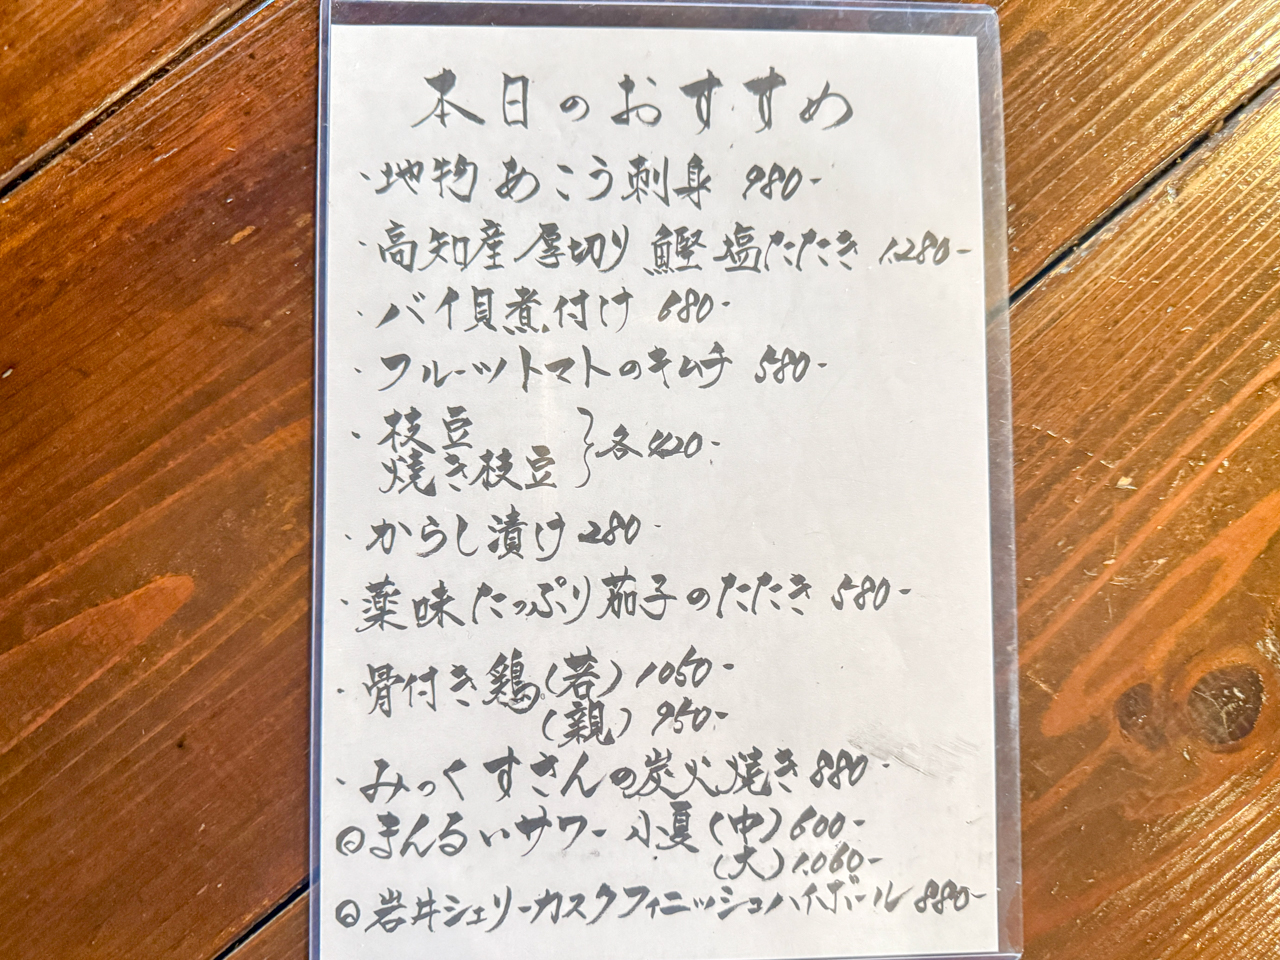 本日のおすすめ
・地物 あこう刺身 980-
・高知産厚切り 鰹 塩たたき 1,280-
・バイ貝煮付け 680-
・フルーツトマトのキムチ 580-
・枝豆
焼き枝豆 }各420-
・からし漬け 280-
・薬味たっぷり茄子のたたき 580-
・骨付き鶏(若) 1050-
(親) 950-
・みっくすさんの炭火焼き 880-
◎まんるいサワー 小夏 (中) 600-
(大) 1,060-
◎岩井シェリーカスクフィニッシュハイボール 880-